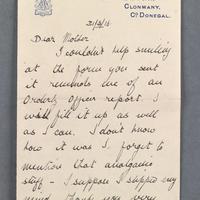 CLONMANY,
Co DONEGAL.
21/3/16
Dear Mother
I couldn't help smiling
at the form you sent
it reminds me of an
Orderly Officer report. I
will fill it up as well
as I can. I don't know
how it was I forget to
mention that analgesic
stuff - I suppose it slipped my
mind, thank you very